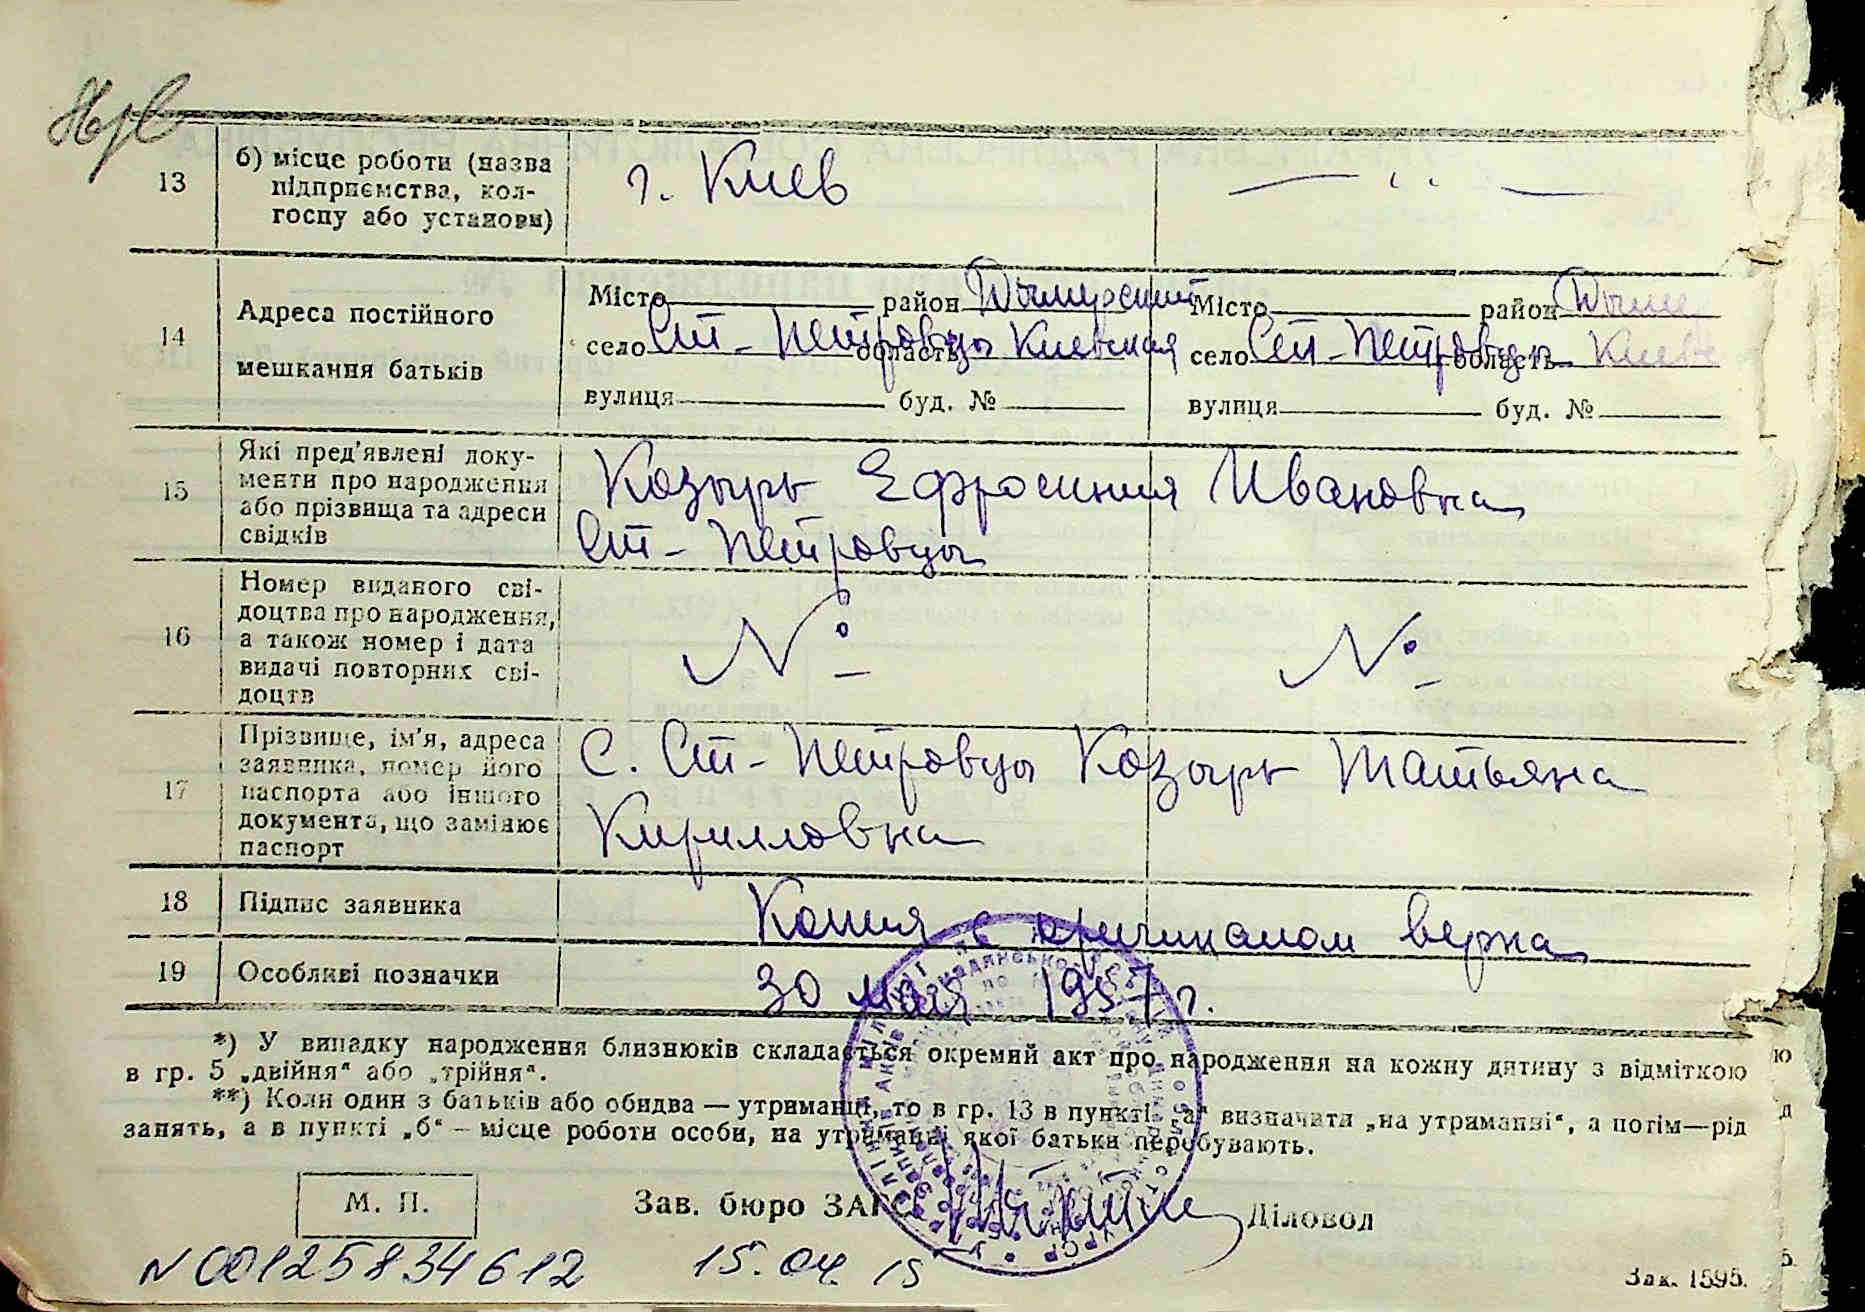 13
б) місце роботи (назва
підприємства, кол-
госпу або установи)
г. Киев
— „ —
14
Адреса постійного
мешкання батьків
Місто район Дымерский
село Ст-Петровцы область Киевская
вулиця буд. №
Місто район Дыме
село Ст-Петровцы область Киевс
вулиця буд. №
15
Які пред'явлені доку-
менти про народження
або прізвища та адреси
свідків
Козырь Ефросиния Ивановна
Ст-Петровцы
16
Номер виданого сві-
доцтва про народження,
а також номер і дата
видачі повторних сві-
доцтв
№
№
17
Прізвище, ім'я, адреса
заявника, номер його
паспорта або іншого
документа, що замінює
паспорт
С. Ст-Петровцы Козырь Татьяна
Кирилловна
18
Підпис заявника
Копия с оригиналом верна
19
Особливі позначки
30 мая 1957 г.
*) У випадку народження близнюків складається окремий акт про народження на кожну дитину з відміткою
в гр. 5 „двійня“ або „трійня“.
**) Коли один з батьків або обидва — утриманці, то в гр. 13 в пункті „а“ визначати „на утриманні“, а потім—рід
занять, а в пункті „б“ – місце роботи особи, на утриманні якої батьки перебувають.
М. П.
Зав. бюро ЗАГС
Діловод
N 00125834612
15.04.15
Зак. 1595.